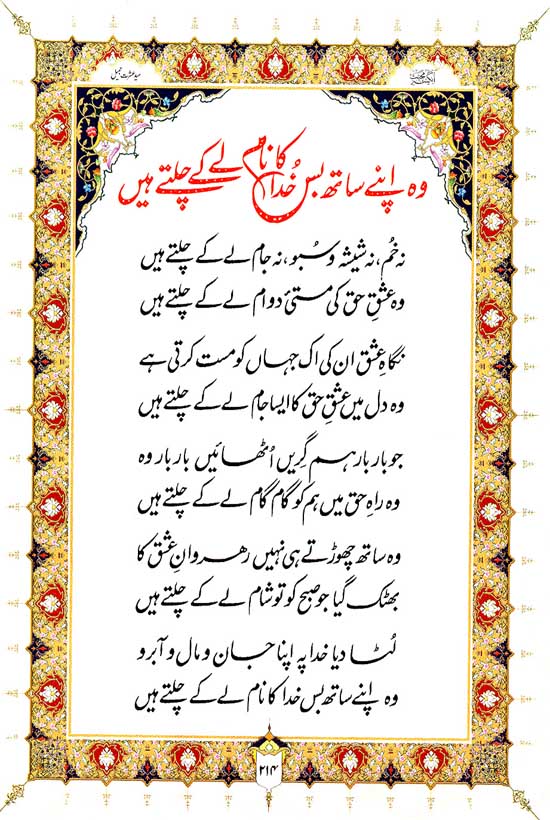 وہ اپنے ساتھ بس خدا کا نام لے کے چلتے ہیں
نہ خُم، نہ شیشہ و سُبو، نہ جام لے کے چلتے ہیں
وہ عشقِ حق کی مستیٔ دوام لے کے چلتے ہیں
نگاہِ عشق ان کی اک جہاں کو مست کرتی ہے
وہ دل میں عشقِ حق کا ایسا جام لے کے چلتے ہیں
جو بار بار ہم گریں اُٹھائیں بار بار وہ
وہ راہِ حق میں ہم کو گام گام لے کے چلتے ہیں
وہ ساتھ چھوڑتے ہی نہیں رھروانِ عشق کا
بھٹک گیا جو صبح کو تو شام لے کے چلتے ہیں
لُٹا دیا خدا پہ اپنا جان و مال و آبرو
وہ اپنے ساتھ بس خدا کا نام لے کے چلتے ہیں
۲۱۴